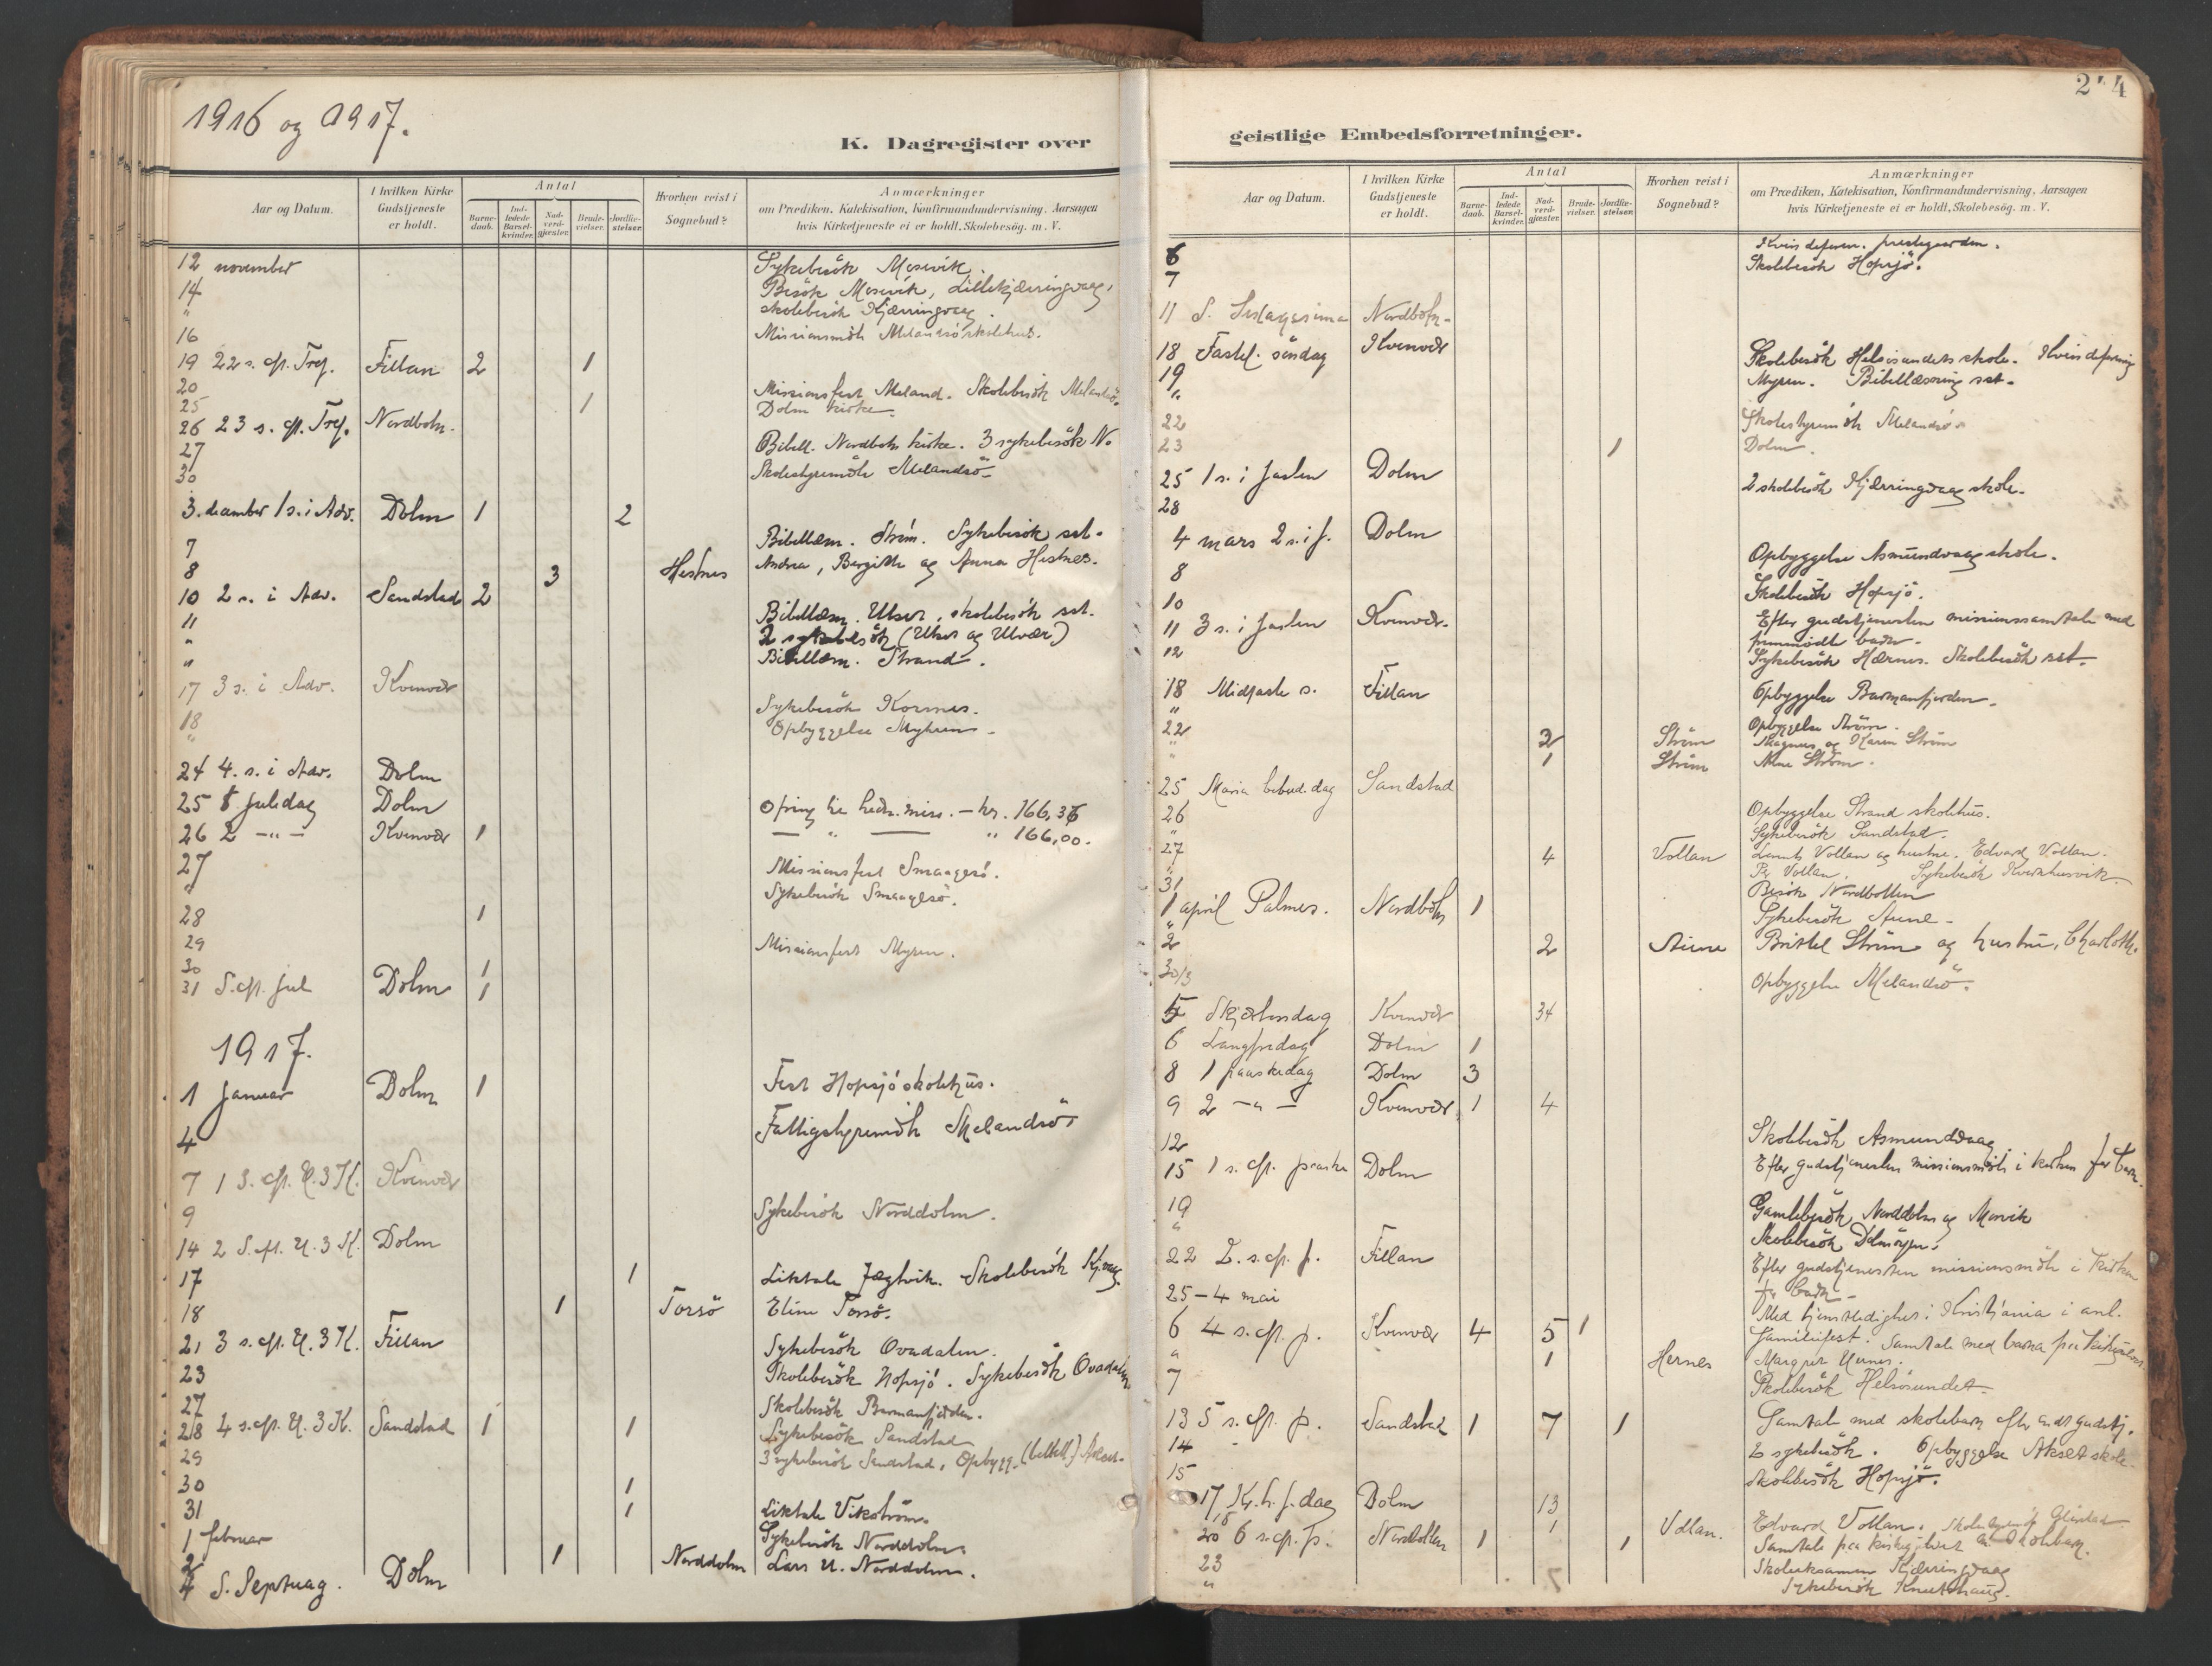 1916 og 1917.
K. Dagregister over
Aar og Datum.
I hvilken Kirke Gudstjeneste er holdt.
Antal
Barne-daab.
Ind-ledede Barsel-kvinder.
Nad-verd-gjester.
Brude-vielser.
Jordfæ-stelser.
Hvorhen reist i Sognebud?
Anmærkninger
om Prædiken, Katekisation, Konfirmandundervisning, Aarsagen
hvis Kirketjeneste ei er holdt, Skolebesög. m. V.
12 november Sykebesök Mosevik.
14 Besök Mosevik, Lillekjærringvaag,
" skolebesök Kjærringvaag.
16 Missionsmöte Melandsö skolehus.
19 22 s. eft. Tref. Fillan 2 1
20 Missionsfest Meland. Skolebesök Melandsö.
25 1 Dolm kirke.
26 23 s. eft. Tref. Nordbotn.
27 Bibell. Nordbotn kirke. 3 sykebesök N.
30 Skolestyremöte Melandsö.
3. december 1 s. i Adv. Dolm 1 2
7 Bibellæsn. Ström. Sykebesök sst.
8 3 Hestnes Andrea, Bergitte og Anna Hestnes.
10 2 s. i Adv. Sandstad 2
11 Bibellæsn. Utset, skolebesök sst.
" 2 sykebesök (Utset og Ulvær)
" Bibellæsn. Strand.
17 3 s. i Adv. Kvenvær
18 Sykebesök Korsnes.
" Opbyggelse Myhren.
24 4. s. i Adv. Dolm
25 1 juledag Dolm Ofring til hedn. miss. – kr. 166,36
26 2 – " – Kvenvær 1 — " — " 166,00.
27 Missionsfest Smaagesö.
" Sykebesök Smaagesö.
28 1
29 Missionsfest Myren.
30 1
31 S. eft. jul Dolm 1
1917.
1 Januar Dolm 1 Fest Hopsjö skolehus.
4 Fattigstyremöte Melandsö
7 1 S. eft. H. 3 K. Kvenvær
9 Sykebesök Norddolm.
14 2 S. eft. H. 3 K. Dolm
17 1 Liktale Jægtvik. Skolebesök Kj.vaag
18 1 Torsö Eline Torsö.
21 3 s. eft. H. 3 K. Fillan
23 Sykebesök Ovadalen.
Skolebesök Hopsjö. Sykebesök Ovadalen
27 Skolebesök Barmanfjorden.
28 4 s. eft. H. 3 K. Sandstad 1 1 Sykebesök Sandstad
29 3 sykebesök Sandstad, Opbygg.
30 1
31 1 Liktale Vikström.
1 februar Sykebesök Norddolm.
2 1 Norddolm Lars U. Norddolm.
4 S. Septuag. Dolm
244
geistlige Embedsforretninger.
Aar og Datum.
I hvilken Kirke Gudstjeneste er holdt.
Antal
Barne-daab.
Ind-ledede Barsel-kvinder.
Nad-verd-gjester.
Brude-vielser.
Jordfæ-stelser.
Hvorhen reist i Sognebud?
Anmærkninger
om Prædiken, Katekisation, Konfirmandundervisning, Aarsagen
hvis Kirketjeneste ei er holdt, Skolebesög. m. V.
6 Kvindeforen. prestegaarden.
7 Skolebesök Hopsjö.
11 S. Sexagesima Nordbotn
18 Fastel. söndag Kvenvær
19 Skolebesök Helsösundets skole. Kvindeforening
" Myren. Bibellæsning sst.
22 Skolestyremöte Melandsö
23 1 Dolm.
25 1 s. i fasten Dolm
28 2 skolebesök Kjærringvaag skole.
4 mars 2 s. i f. Dolm
8 Opbyggelse Asmundvaag skole.
10 Skolebesök Hopsjö.
11 3 s. i fasten Kvenvær. Efter gudstjenesten missionssamtale med
fremmödte barn.
12 Sykebesök Hærnes. Skolebesök sst.
18 Midfaste s. Fillan
" Opbyggelse Barmanfjorden.
22 Opbyggelse Ström.
" 2 Ström Magnus og Karen Ström
" 1 Ström Ström.
25 Maria bebud. dag Sandstad
26 Opbyggelse Strand skolehus.
" Sykebesök Sandstad.
27 4 Vollan Vollan og hustru. Edvard Vollan.
" Vollan. Sykebesök Kvernhusvik.
31 Besök Nordbotten
1 april Palmes. Nordbotn 1
" Sykebesök Stene
2 2 Stene Ström og hustru, Charlotte.
30/3 Opbyggelse Melandsö.
5 Skjærtorsdag Kvenvær 34
6 Langfredag Dolm 1
8 1 paaskedag Dolm 3
9 2 – " – Kvenvær 1 4
12 Skolebesök Asmundvaag
15 1 s. eft. paaske Dolm Efter gudstjenesten missionsmöte i kirken for barn.
19 Gamlebesök Norddolm og Mosvik
" Skolebesök Dolmöyen.
22 2. s. eft. p. Fillan Efter gudstjenesten missionsmöte i kirken
for barn
25 – 4 mai Med tjenstledighet i Kristiania i anl.
familiefest. Samtale med barna paa kirkegulvet
6 4 s. eft. p. Kvenvær 4 5 1
" 1 Hernes Margret Hernes.
7 Skolebesök Helsösundet.
13 5 s. eft. p. Sandstad 1 7 1 Samtale med skolebarn efter endt gudstj.
14 2 sykebesök. Opbyggelse Akset skole.
15 Skolebesök Hopsjö.
17 Kr. h. f. dag Dolm 13
18 1 Vollan. Edvard Vollan.
20 6 s. eft. p. Nordbotten 1 1 Samtale paa kirkegulvet skolebarn.
23 Skoleeksamen Kjærringvaag
" Sykebesök Knutshaug.